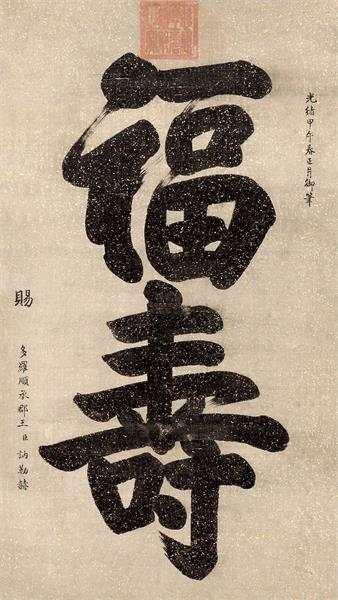 光緒甲午春正月御筆
福壽
賜
多羅順承郡王臣訥勒赫